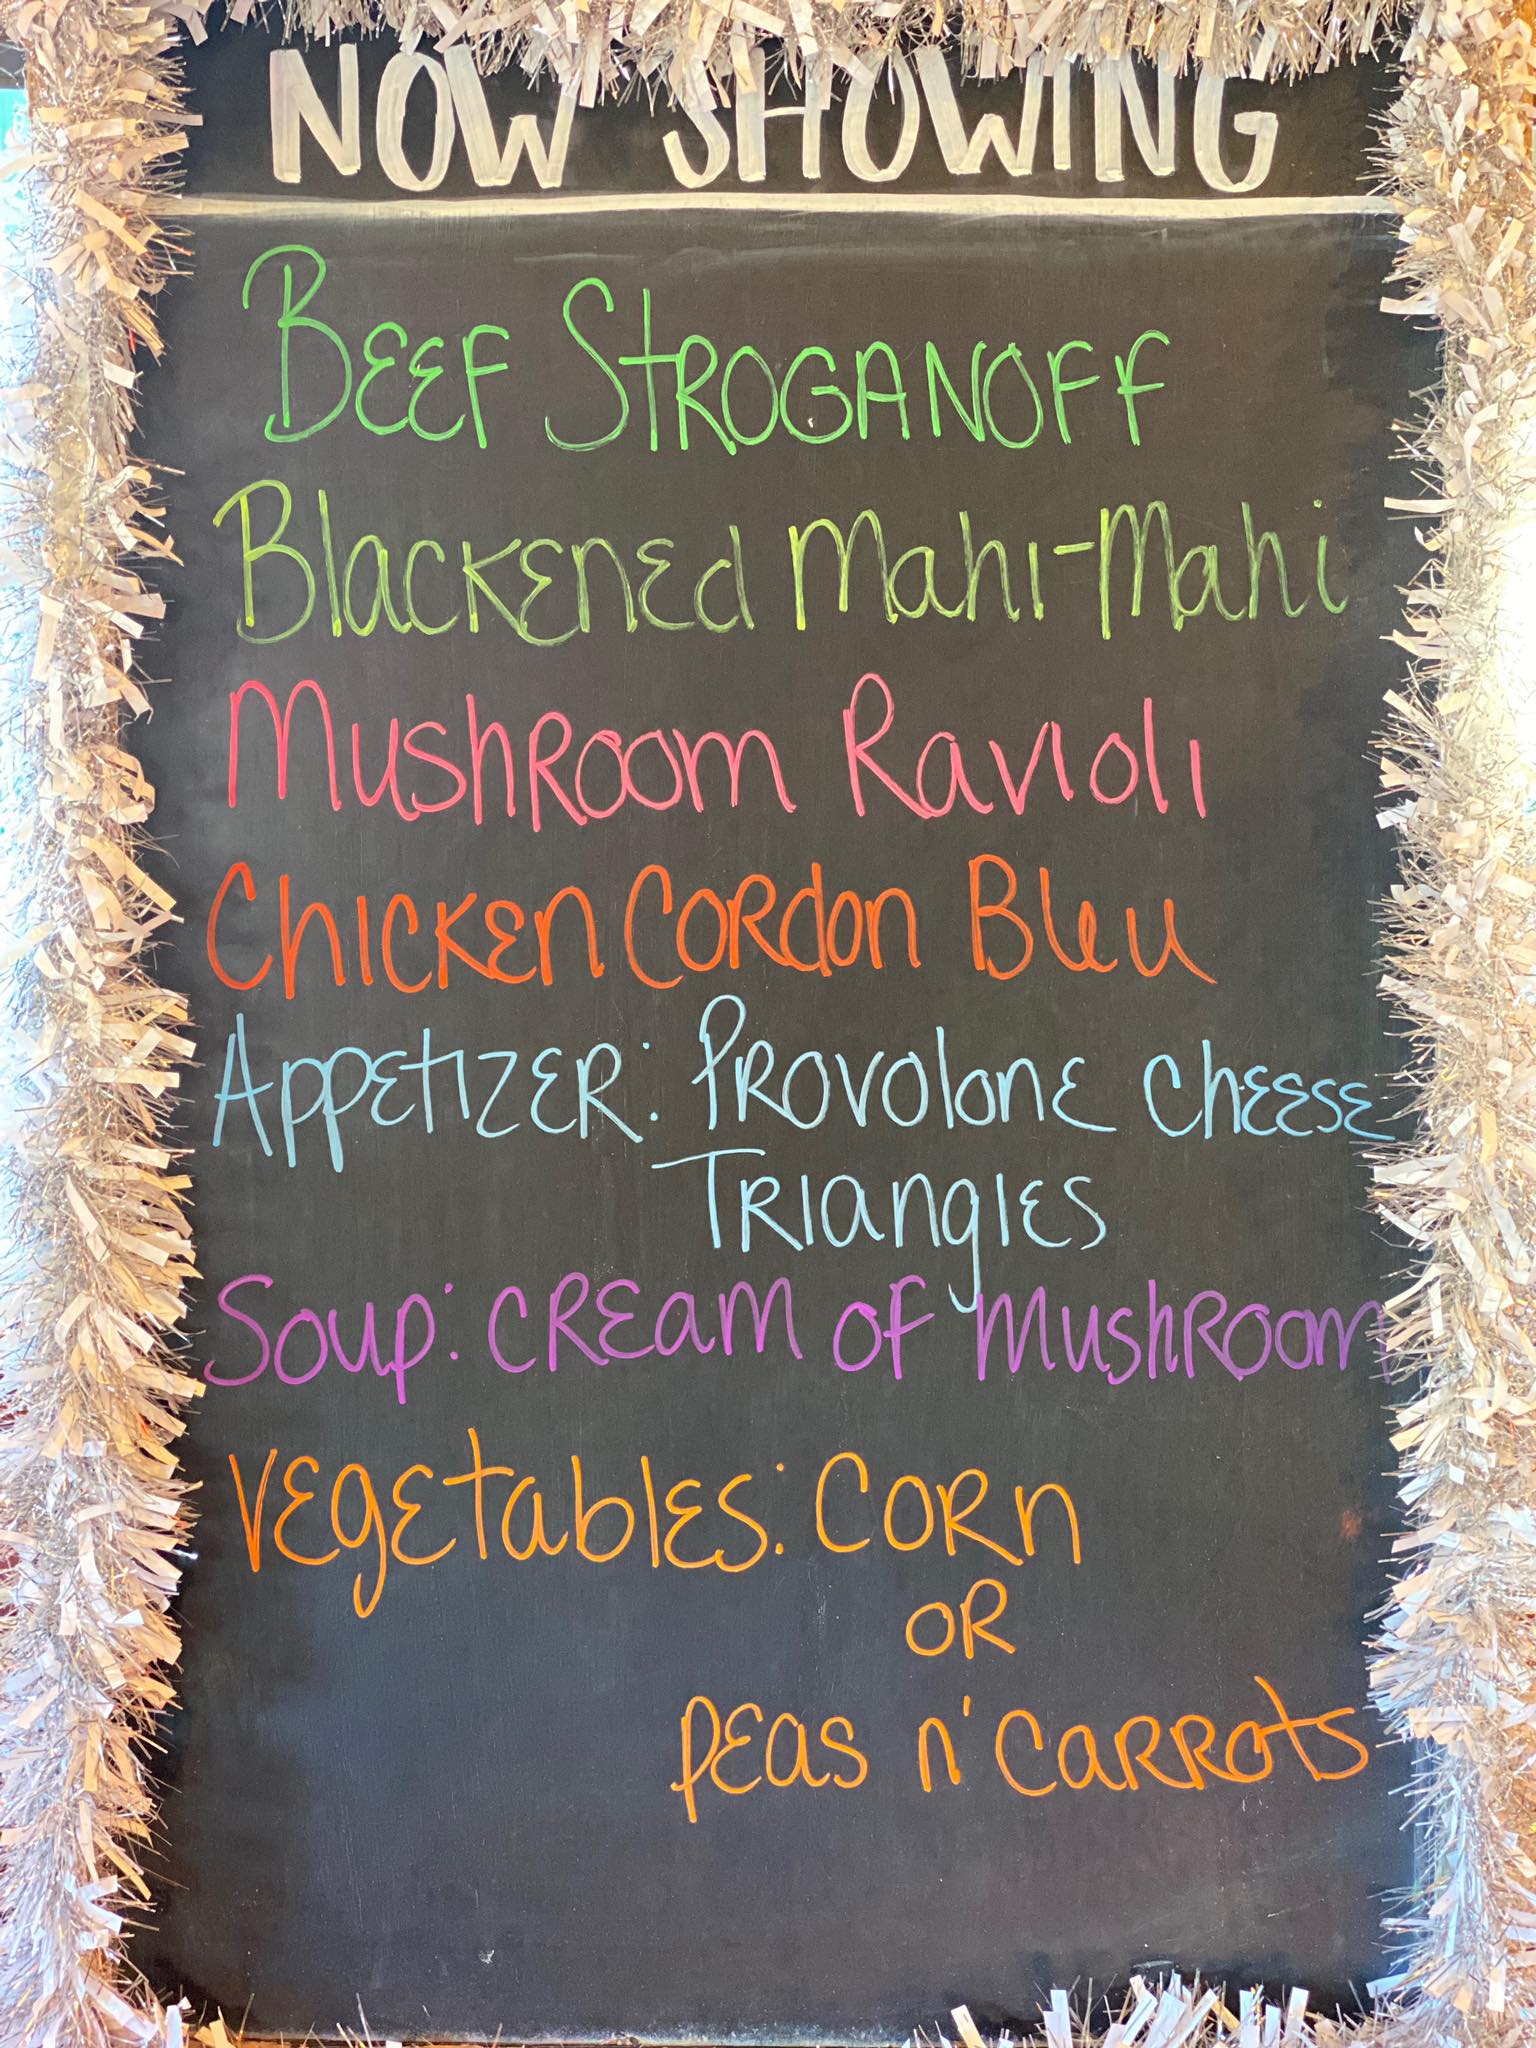 NOW SHOWING
Beef Stroganoff
Blackened Mahi-Mahi
Mushroom Ravioli
Chicken Cordon Bleu
Appetizer: Provolone Cheese
Triangles
Soup: Cream of Mushroom
Vegetables: Corn
or
Peas n' Carrots